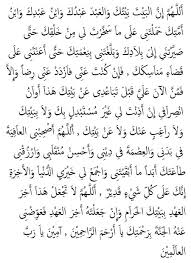 أَللّٰهُمَّ إِنَّ الْبَيْتَ بَيْتُكَ وَالْعَبْدَ عَبْدُكَ وَابْنُ عَبْدِكَ وَابْنُ
أَمَتِكَ حَمَلْتَنِي عَلَى مَا سَخَّرْتَ لِي مِنْ خَلْقِكَ حَتَّى
صَيَّرْتَنِي إِلَى بِلَادِكَ وَبَلَّغْتَنِي بِنِعْمَتِكَ حَتَّى أَعَنْتَنِي عَلَى
قَضَاءِ مَنَاسِكِكَ ، فَإِنْ كُنْتَ عَنِّي فَازْدَدْ عَنِّي رِضًا وَإِلَّا
فَمُنَّ الْآنَ عَلَيَّ قَبْلَ تَبَاعُدِي عَنْ بَيْتِكَ هَذَا أَوَانُ
انْصِرَافِي إِنْ أَذِنْتَ لِي غَيْرَ مُسْتَبْدِلٍ بِكَ وَلَا بِبَيْتِكَ
وَلَا رَاغِبٍ عَنْكَ وَلَا عَنْ بَيْتِكَ ، أَللّٰهُمَّ أَصْحِبْنِي الْعَافِيَةَ
فِي بَدَنِي وَالْعِصْمَةَ فِي دِينِي وَأَحْسِنْ مُنْقَلَبِي وَارْزُقْنِي
طَاعَتَكَ أَبَدًا مَا أَبْقَيْتَنِي وَاجْمَعْ لِي خَيْرَيِ الدُّنْيَا وَالْآخِرَةِ
إِنَّكَ عَلَى كُلِّ شَيْءٍ قَدِيرٌ ، أَللّٰهُمَّ لَا تَجْعَلْ هَذَا آخِرَ
الْعَهْدِ بِبَيْتِكَ الْحَرَامِ وَإِنْ جَعَلْتَهُ آخِرَ الْعَهْدِ فَعَوِّضْنِي
عَنْهُ الْجَنَّةَ بِرَحْمَتِكَ يَا أَرْحَمَ الرَّاحِمِينَ ، آمِيْنَ يَا رَبَّ
الْعَالَمِيْنَ